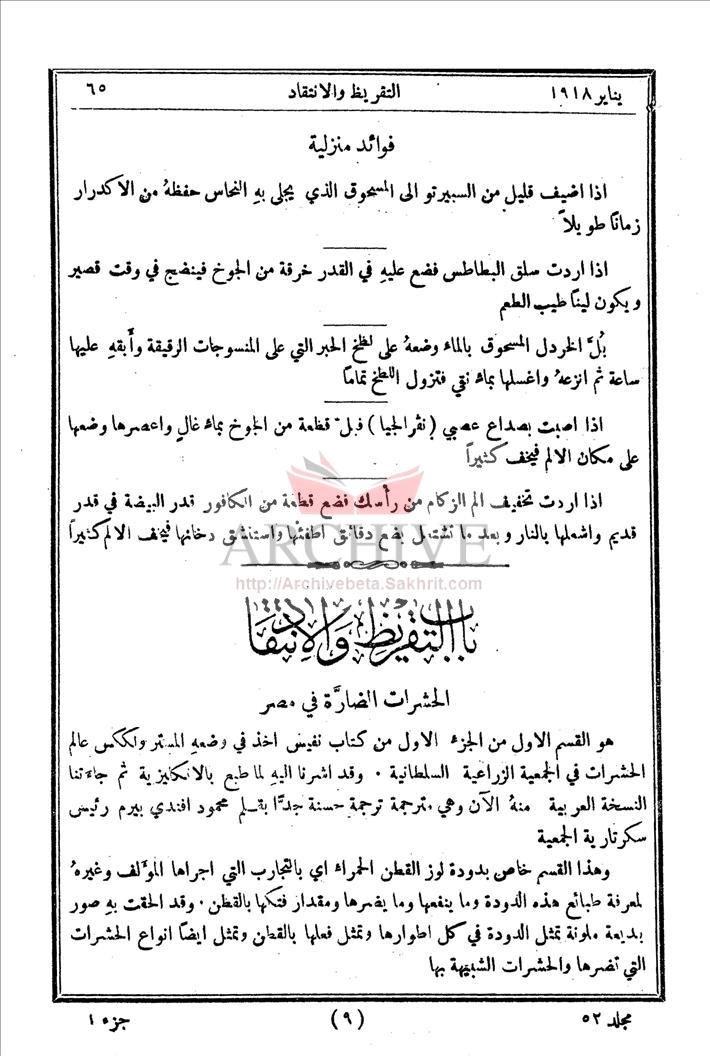 يناير ١٩١٨ التقريظ والانتقاد ٦٥
فوائد منزلية
اذا اضيف قليل من السبيرتو الى المسحوق الذي يجلى بهِ النحاس حفظهُ من الاكدرار
زمانًا طويلاً
اذا اردت سلق البطاطس فضع عليهِ في القدر خرقة من الجوخ فينضج في وقت قصير
ويكون لينًا طيب الطعم
بُلَّ الخردل المسحوق بالماء وضعهُ على لطخ الحبر التي على المنسوجات الرقيقة وأبقهِ عليها
ساعة ثم انزعهُ واغسلها بماء نقي فتزول اللطخ تمامًا
اذا اصبت بصداع عصبي (نڤرالجيا) فبلّ قطعة من الجوخ بماء غالٍ واعصرها وضعها
على مكان الالم فيخف كثيرًا
اذا اردت تخفيف الم الزكام من رأسك فضع قطعة من الكافور قدر البيضة في قدر
قديم واشعلها بالنار وبعد ما تشتعل بضع دقائق اطفئها واستنشق دخانها فيخف الالم كثيرًا
ARCHIVE
http://Archivebeta.Sakhrit.com
باب التقريظ والانتقاد
الحشرات الضارَّة في مصر
هو القسم الاول من الجزء الاول من كتاب نفيس اخذ في وضعهِ المستر ولككس عالم
الحشرات في الجمعية الزراعية السلطانية . وقد اشرنا اليهِ لما طبع بالانكليزية ثم جاءتنا
النسخة العربية منهُ الآن وهي مترجمة ترجمة حسنة جدًّا بقلم محمود افندي بيرم رئيس
سكرتارية الجمعية
وهذا القسم خاص بدودة لوز القطن الحمراء اي بالتجارب التي اجراها المؤلف وغيرهُ
لمعرفة طبائع هذه الدودة وما ينفعها وما يضرها ومقدار فتكها بالقطن . وقد الحقت بهِ صور
بديعة ملونة تمثل الدودة في كل اطوارها وتمثل فعلها بالقطن وتمثل ايضًا انواع الحشرات
التي تضرها والحشرات الشبيهة بها
مجلد ٥٢ (٩) جزء ١